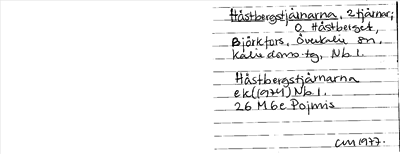 Håstbergstjärnarna, 2 tjärnar;
O. Håstberget,
Björkfors, Överkalix sn,
Kalix doms. tg, Nb l.
Håstbergstjärnarna
ek (1974) Nb l.
26 M 6c Pojmis
CM 1977.